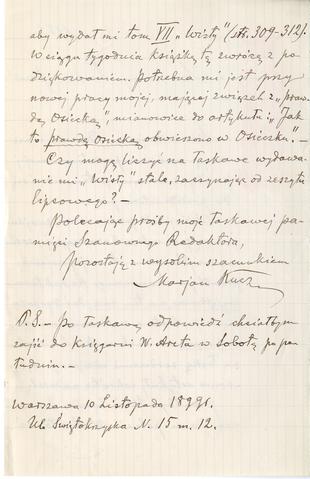 aby wydał mi tom VII „Wisły" (str. 309-312).
W ciągu tygodnia książkę tę zwrócę z po-
dziękowaniem. Potrzebna mi jest przy
nowej pracy mojej, mającej związek z „praw-
dą Osiecką", mianowicie do artykułu: „Jak
to prawdę osiecką obwieszono w Osiecku." –
Czy mogę liczyć na łaskawe wydawa-
nie mi „Wisły" stale, zaczynając od zeszytu
lipcowego? –
Polecając prośby moje łaskawej pa-
mięci Szanownego Redaktora,
pozostaję z wysokim szacunkiem
Marjan
P. S. – Po łaskawą odpowiedź chciałbym
zajść do księgarni W. Arcta w Sobotę po po-
łudniu. –
Warszawa 10 Listopada 1899 r.
Ul. Świętokrzyska N. 15 m. 12.